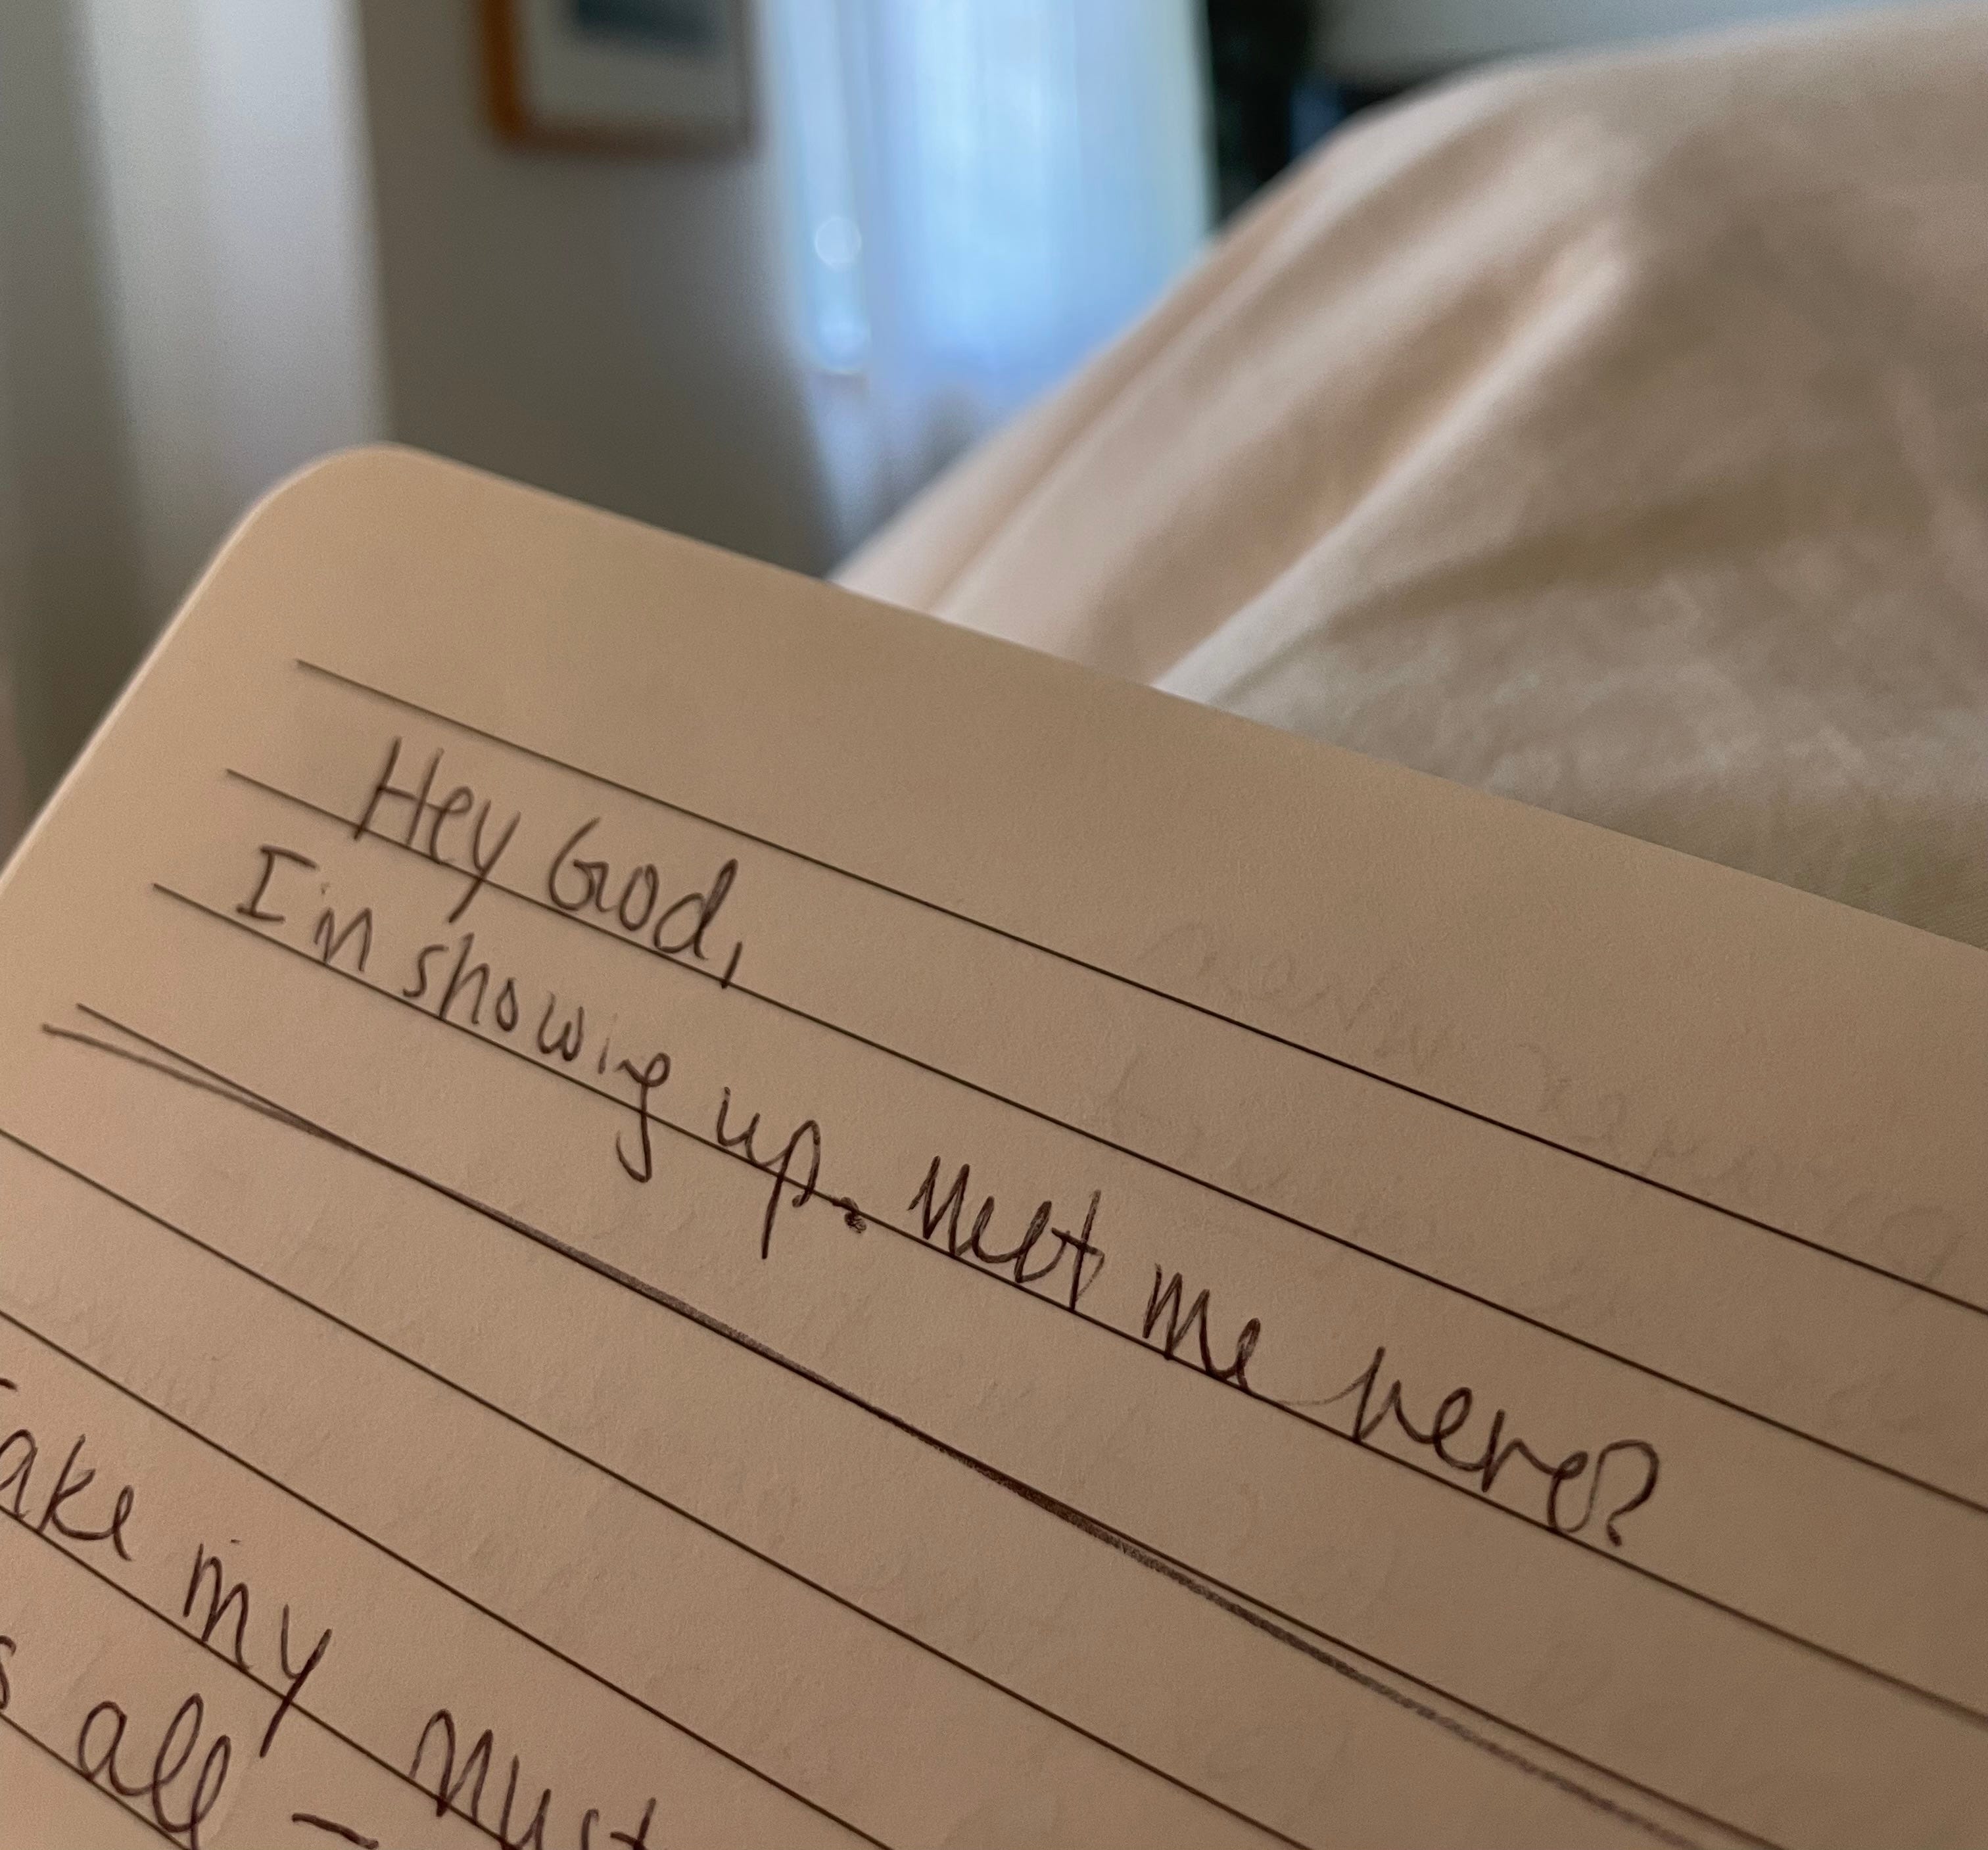 Hey God,
I'm showing up. Meet me here?
Take my
all —